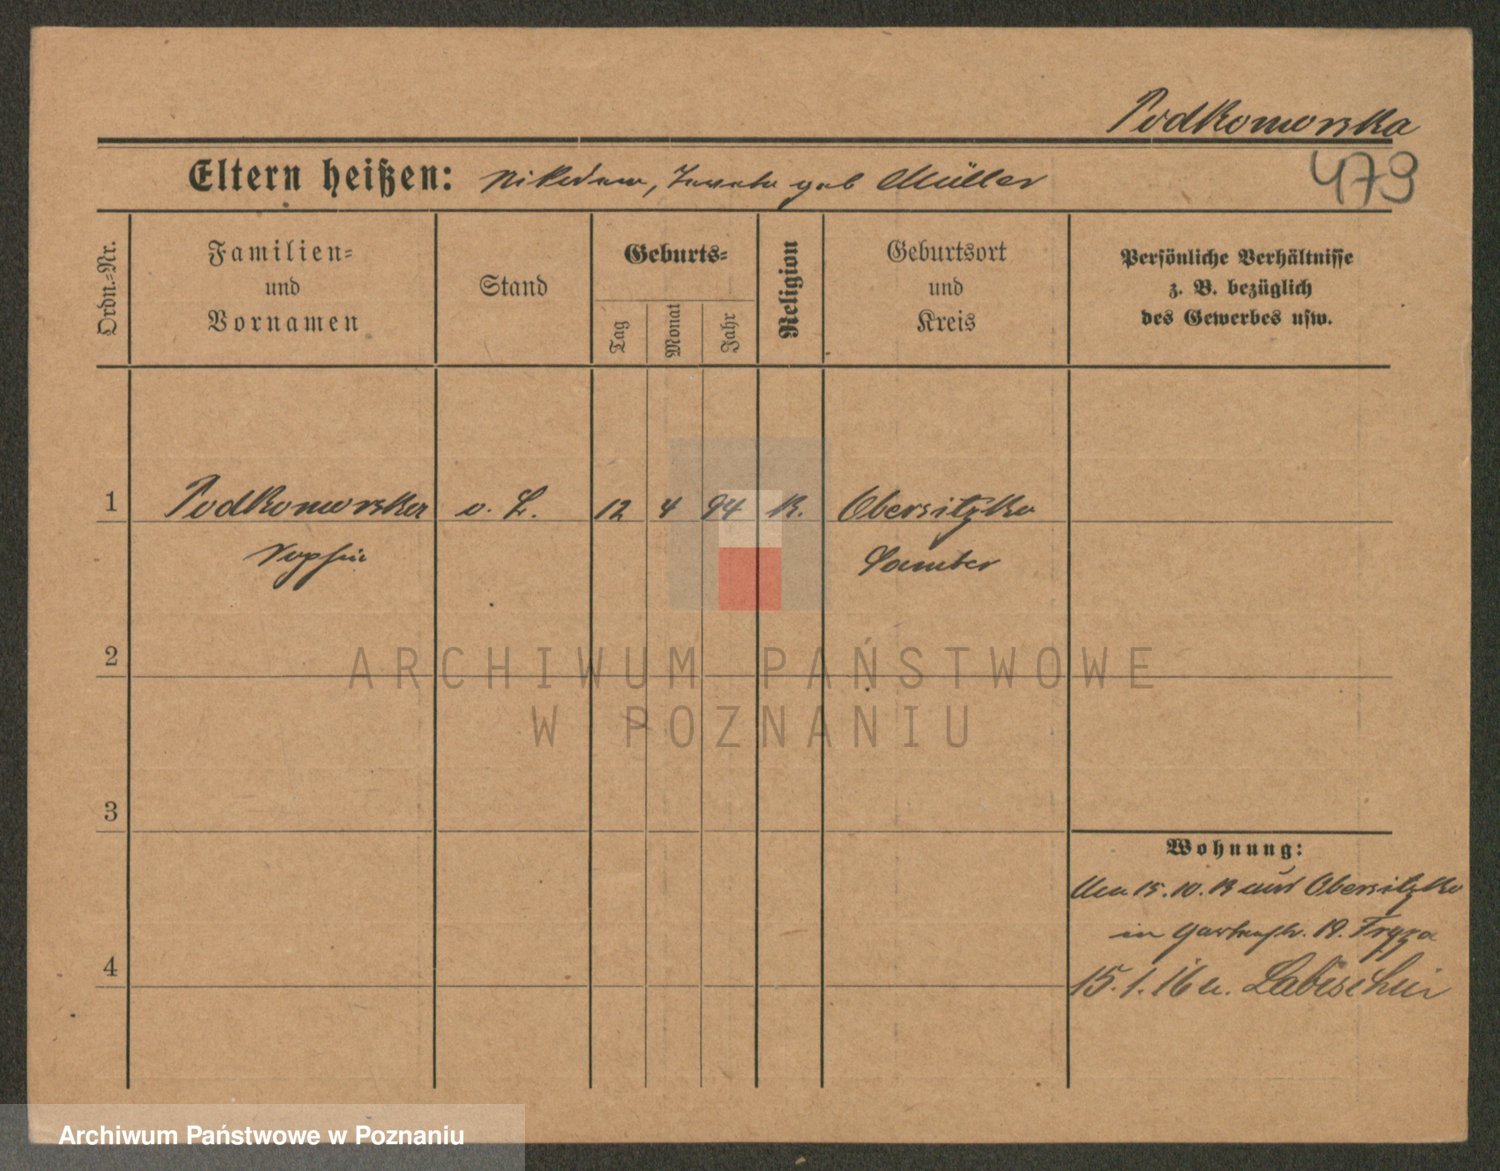 Podkomorska
479
Eltern heißen: Nikodem, geb Müller
Ordn.=Nr.
Familien=
und
Vornamen
Stand
Geburts=
Tag
Monat
Jahr
Religion
Geburtsort
und
Kreis
Persönliche Verhältnisse
z. B. bezüglich
des Gewerbes usw.
1 Podkomorska o. L. 12 4 94 K. Obersitzko
Sophie Samter
2
ARCHIWUM PAŃSTWOWE
W POZNANIU
3
Wohnung:
15.10.13 aus Obersitzko
in Gartenstr. 19.
4
15.1.16 n. Labischin
Archiwum Państwowe w Poznaniu